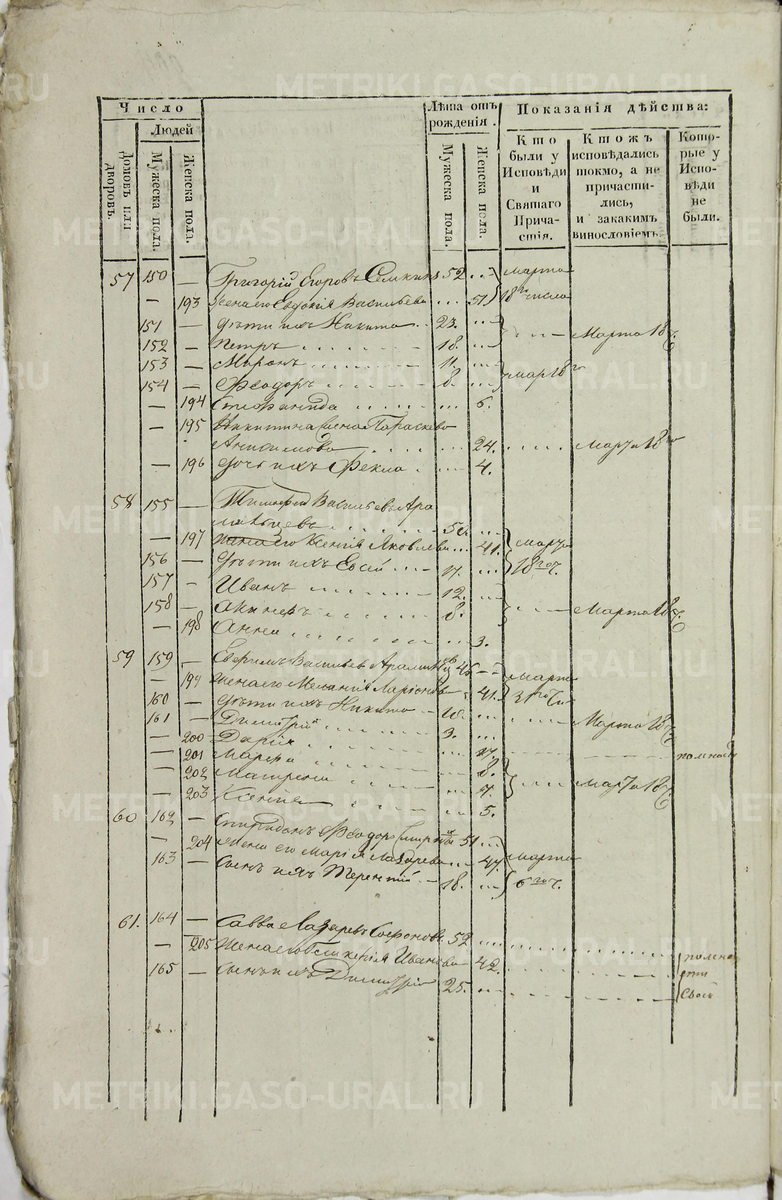 METRIKI.GASO-URAL.RU
Число
Людей
Домовъ или дворовъ.
Мужеска пола.
Женска пола.
Лѣта отъ рожденія.
Мужеска пола.
Женска пола.
Показанія дѣйства:
Кто были у Исповѣди и Святаго Причастія.
Ктожъ исповѣдались токмо, а не причастились, и закакимъ винословіемъ.
Которые у Исповѣди не были.
57 150 — Григорій Егоровъ Семкинъ 52 ... Марта
— 193 Жена его Евдокія Васильева ... 51 18го числа
151 — Дѣти ихъ Никита 23. ... Марта 18
152 — Петръ 18. ...
153 — Миронъ 11. ...
154 — Ѳеодоръ 8. ... Мар 18го
— 194 Степанида ... 6.
— 195 Никитина жена Параскева
Анисимова ... 24. Марта 18го
— 196 Дочь ихъ Фекла ... 4.
58 155 — Тимофей Васильевъ Ара
50. ...
— 197 Жена его Ксенія Яковлева ... 41. Марта
156 — Дѣти ихъ ... 18го ч.
157 — Иванъ 12. ...
158 — 8. Марта 18
— 198 Анна ... 3.
59 159 — Васильевъ 46 — Марта
— 199 Жена его Меланія Ларіонова 41.
160 — Дѣти ихъ Никита 10. ...
161 — Димитрій 3. ... Марта 18
— 200 Дарія ...
— 201 Марѳа ... 8.
— 202 Матрена ... 7. Марта 18
— 203 Ксенія ... 5.
60 162 — Спиридонъ Ѳеодоровъ 51 ...
— 204 Жена его Марія Лазарева ... 47. Марта
163 — Сынъ ихъ Терентій 18. ... 6го ч.
61. 164 — Савва Лазаревъ Софоновъ 52 ...
— 205 Жена его Гликерія Иванова 42.
165 — Сынъ ихъ Димитрій 25. ...